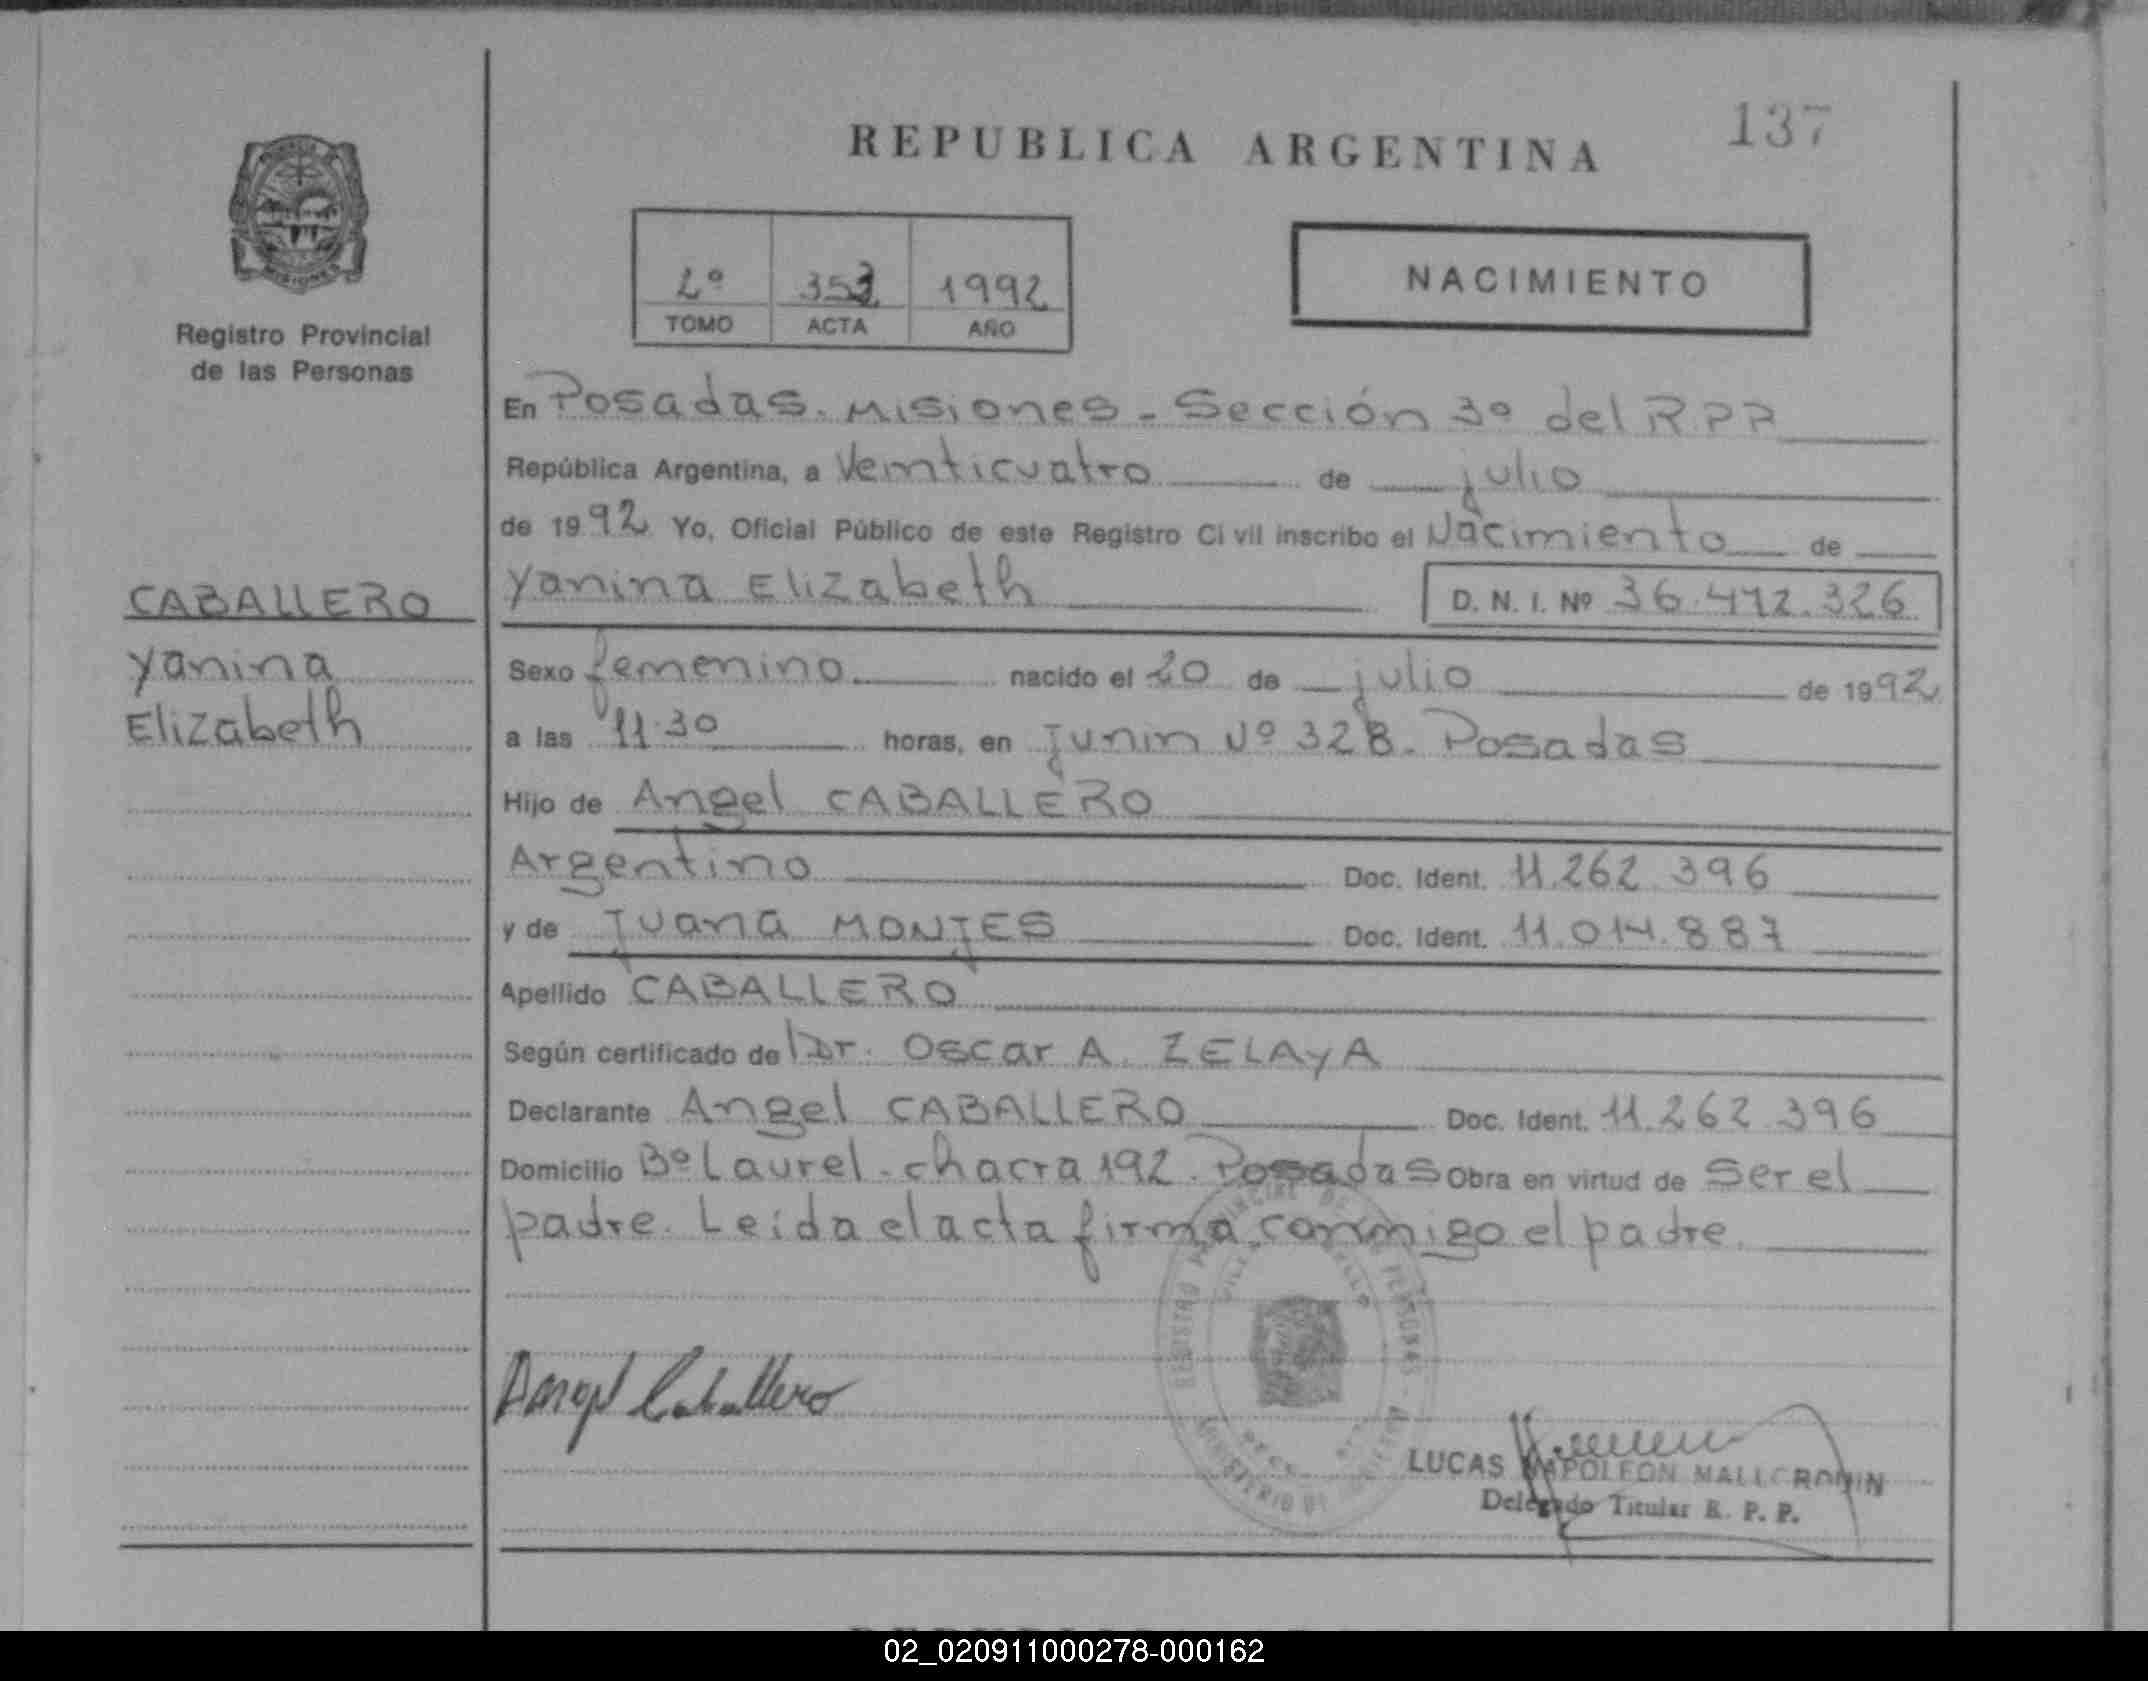 REPUBLICA ARGENTINA
137
Registro Provincial
de las Personas
2º 353 1992
TOMO ACTA AÑO
NACIMIENTO
En Posadas. Misiones - Sección 3º del R.P.P
República Argentina, a Veinticuatro de julio
de 1992 Yo, Oficial Público de este Registro Civil inscribo el Nacimiento de
Yanina Elizabeth D. N. I. Nº 36.472.326
CABALLERO
Yanina
Elizabeth
Sexo femenino nacido el 20 de julio de 1992
a las 11.30 horas, en Junin Nº 328. Posadas
Hijo de Angel CABALLERO
Argentino Doc. Ident. 11.262.396
y de Juana MONJES Doc. Ident. 11.014.887
Apellido CABALLERO
Según certificado de Dr. Oscar A. ZELAYA
Declarante Angel CABALLERO Doc. Ident. 11.262.396
Domicilio Bº Laurel - chacra 192. Posadas Obra en virtud de Ser el
padre. Leída el acta firma conmigo el padre.
Angel Caballero
REGISTRO PROVINCIAL DE PERSONAS
MINISTERIO DE
LUCAS NAPOLEON
Delegado Titular R. P. P.
02_020911000278-000162